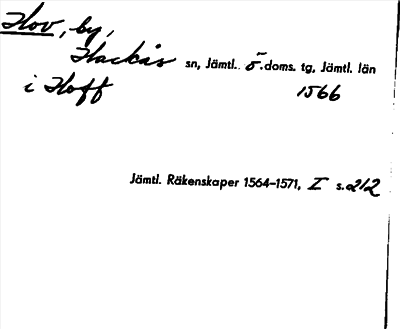 Hov, by,
Hackås sn, Jämtl. ö. doms. tg, Jämtl. län
i Hoff 1566
Jämtl. Räkenskaper 1564–1571, I s. 212